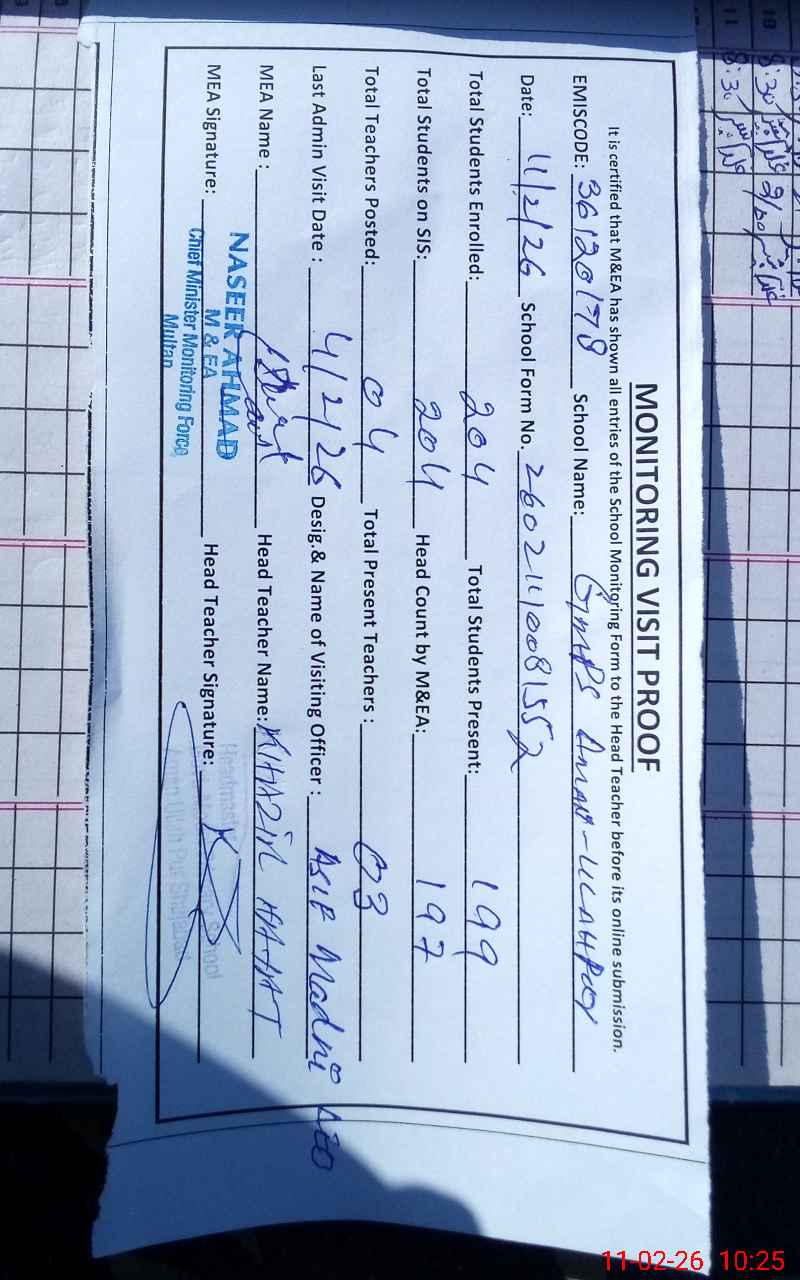 MONITORING VISIT PROOF
It is certified that M&EA has shown all entries of the School Monitoring Form to the Head Teacher before its online submission.
EMISCODE: 36120178 School Name: GMPS Aman-ULAHPur
Date: 11/2/26 School Form No. 26021110081552
Total Students Enrolled: 204 Total Students Present: 199
Total Students on SIS: 204 Head Count by M&EA: 197
Total Teachers Posted: 04 Total Present Teachers: 03
Last Admin Visit Date: 4/2/26 Desig.& Name of Visiting Officer: Asif Madni AEO
MEA Name: Head Teacher Name: KHAZIR HAYAT
MEA Signature: Head Teacher Signature:
NASEER AHMAD
M & EA
Chief Minister Monitoring Force
Multan
Headmaster
10
8:30
11
8:30
11-02-26 10:25